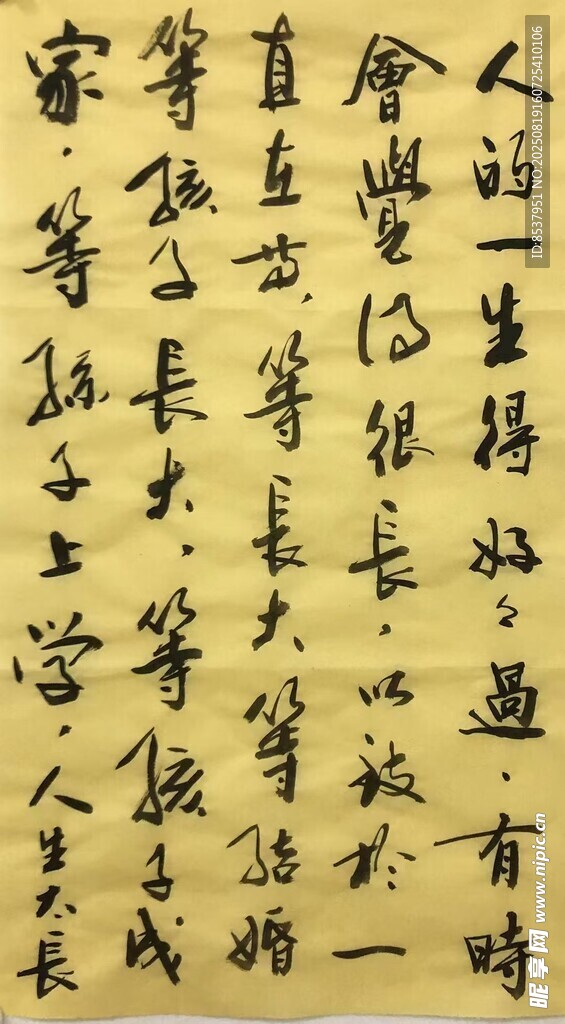 人的一生得好々過，有時
會覺得很長，以致於一
直在等，等長大等結婚
等孩子長大，等孩子成
家，等孫子上学，人生太長
ID:8537951 NO:20250819160725410106
昵享网 www.nipic.cn